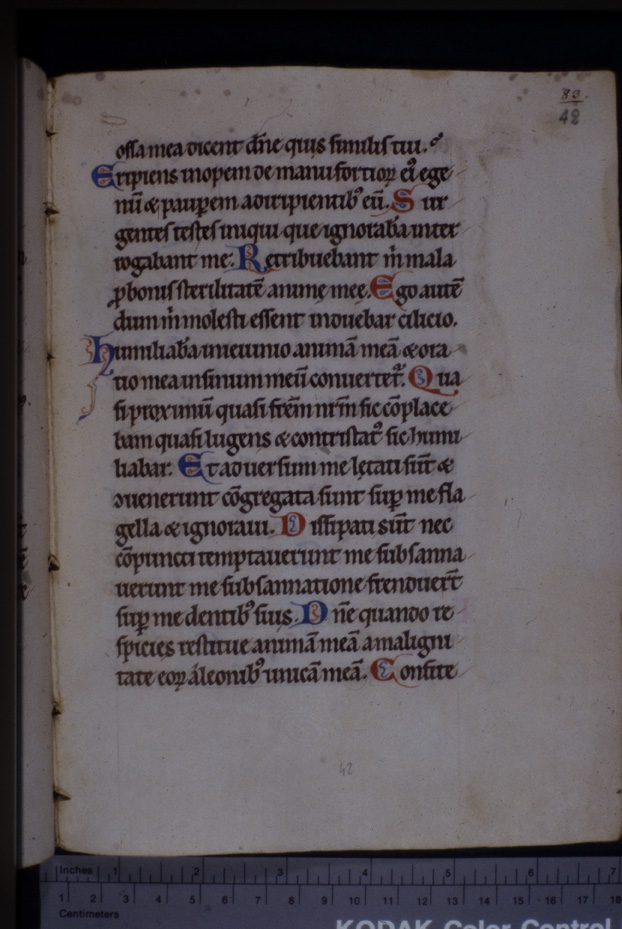 80.
42
ossa mea dicent dn̄e quis similis tui.
Eripiens inopem de manu fortioꝝ ei᷒ ege
nū & paup̲em a diripientib᷒ eū. Sur
gentes testes iniqui que ignorabā inter
rogabant me. Retribuebant m̄ mala
ꝓ bonis sterilitatē animę meę. Ego autē
dum m̄ molesti essent induebar cilicio.
humiliabā in ieiunio animā meā & ora
tio mea in sinum meū convertet᷑. Qua
si proximū quasi frēm nr̄m sic cōplace
bam quasi lugens & contristat᷒ sic humi
liabar. Et adversum me lętati sūt &
ↄvenerunt cōgregata sunt sup̲ me fla
gella & ignoravi. Dissipati sūt nec
cōpuncti temptaverunt me subsanna
verunt me subsannatione frenduer̄t
sup̲ me dentib᷒ suis. Dn̄e quando re
spicies restitue animā meā a maligni
tate eoꝝ a leonib᷒ unicā meā. Confite
42
Inches 1 2 3 4 5 6 7
1 2 3 4 5 6 7 8 9 10 11 12 13 14 15 16 17 18
Centimeters
KODAK Color Control